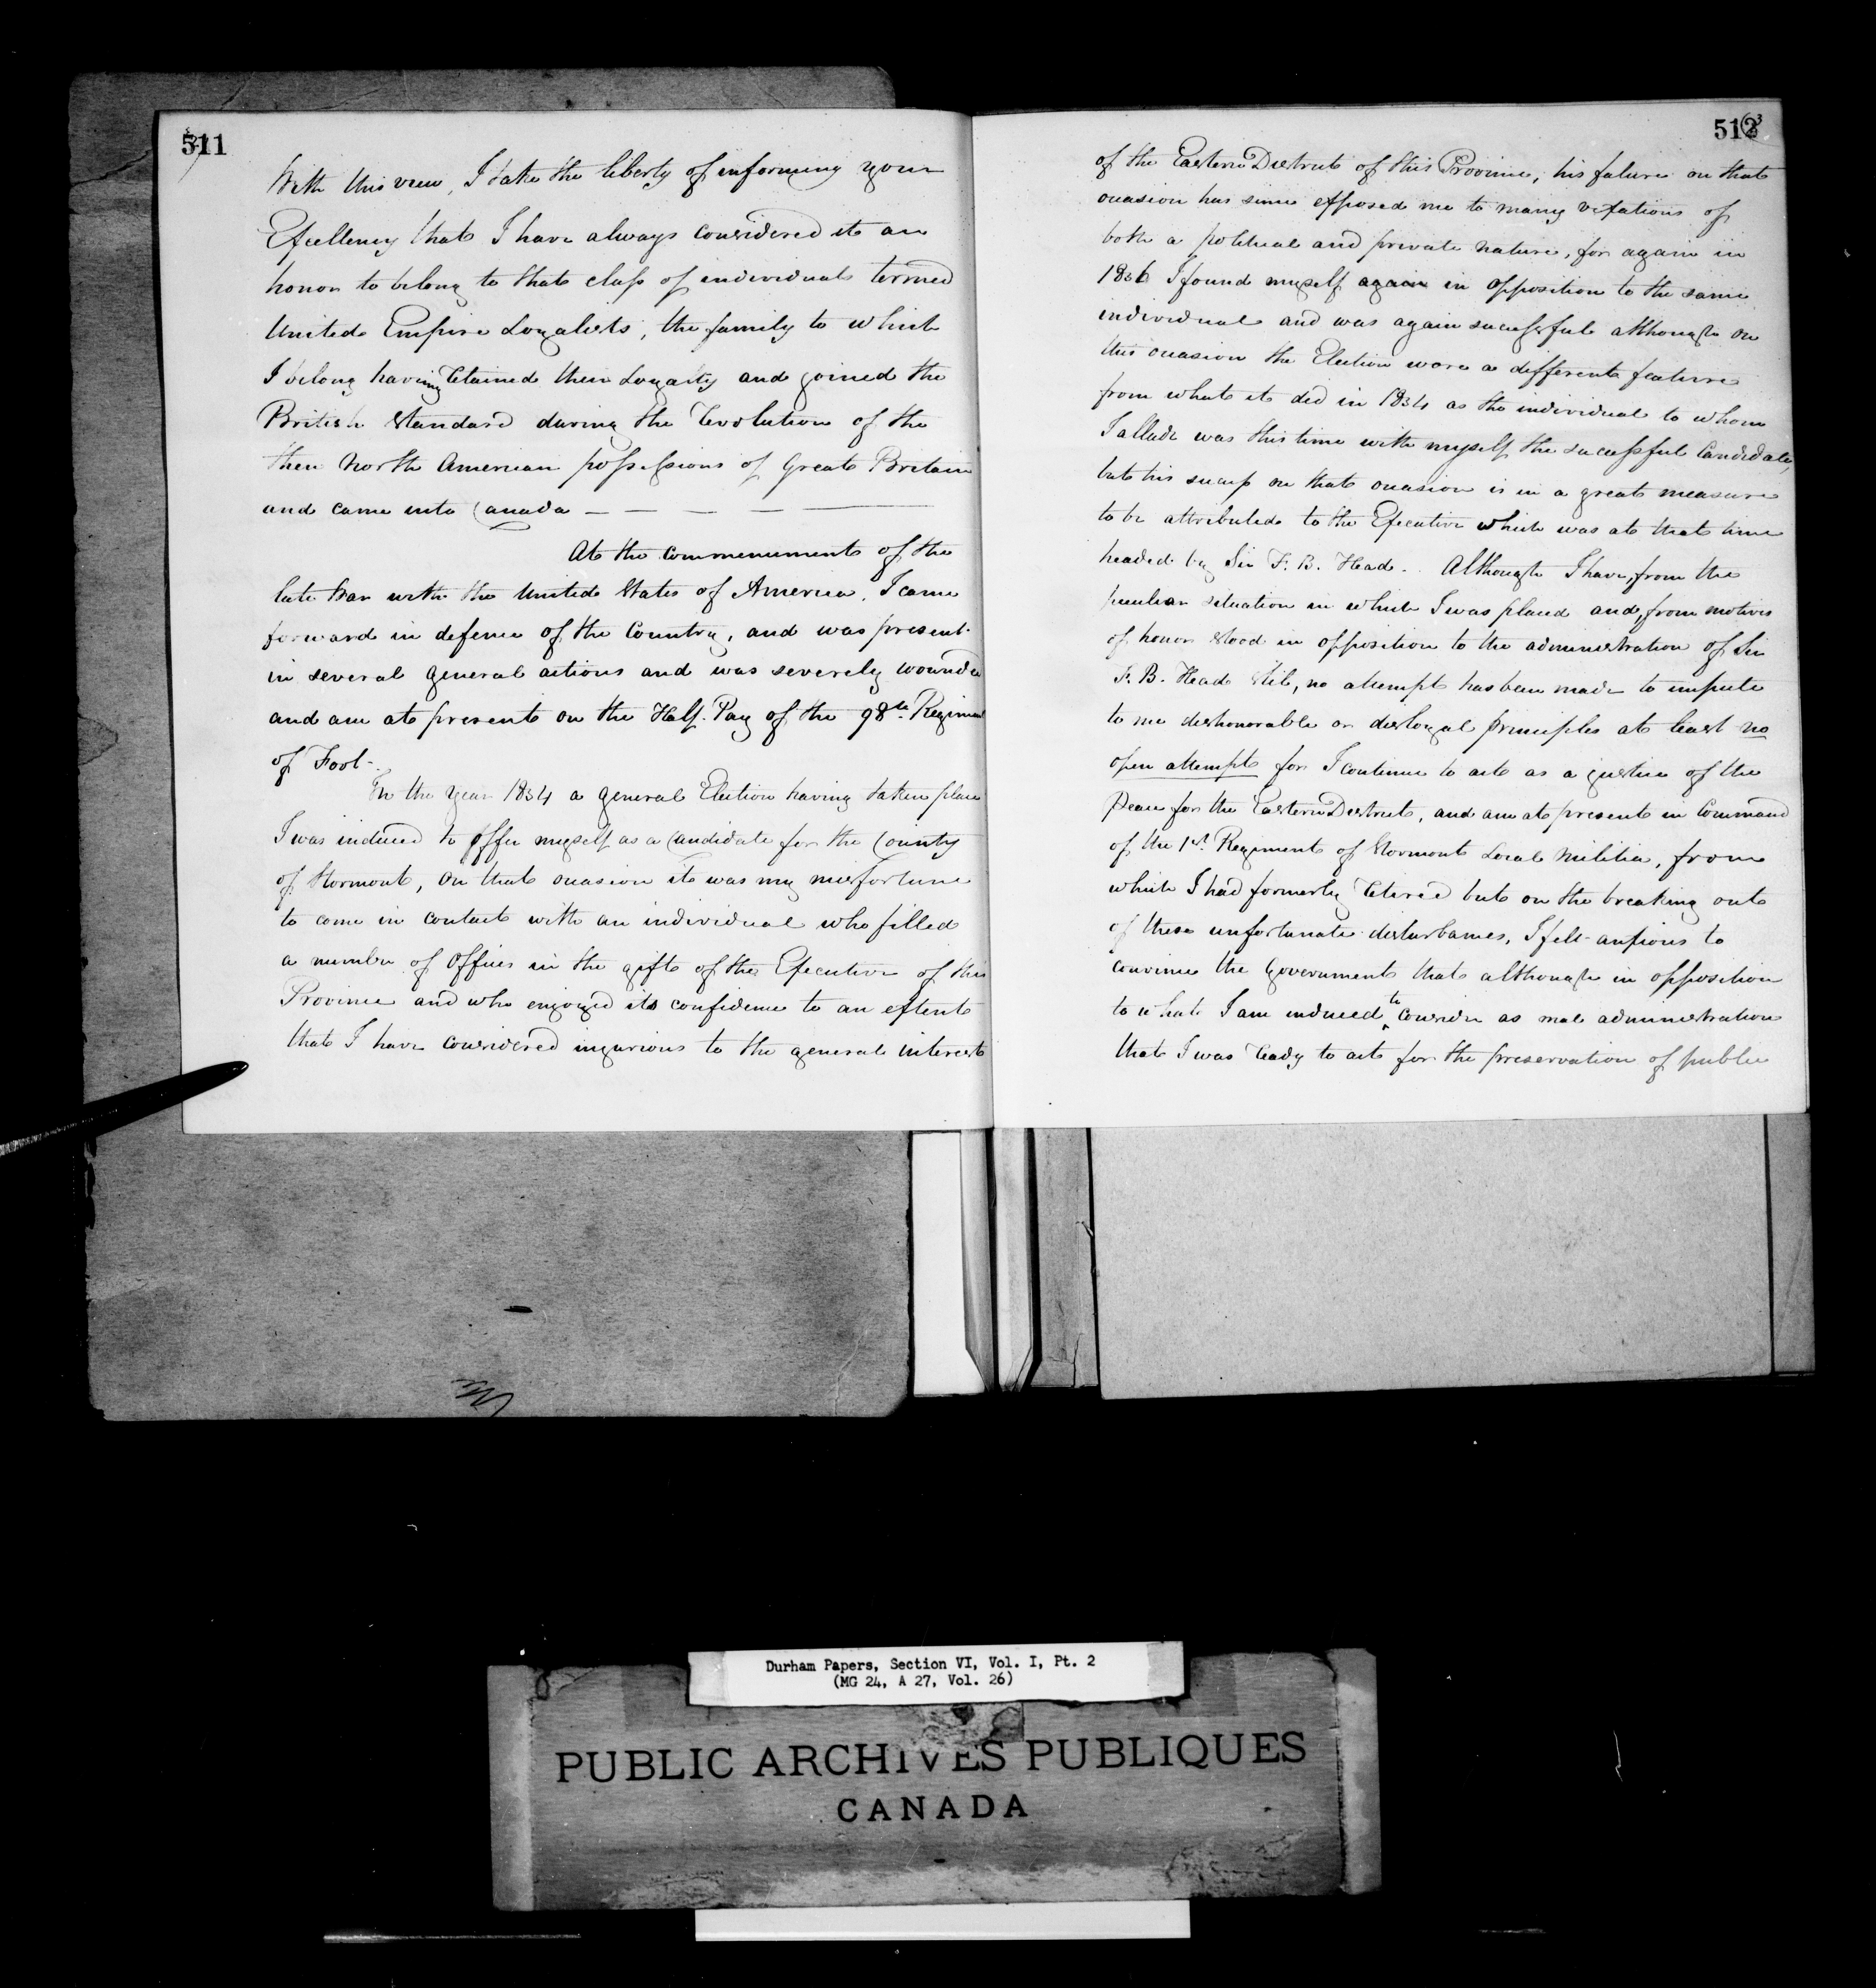 511
With this view, I take the liberty of informing your
Excellency that I have always considered it an
honor to belong to that class of individual termed
United Empire Loyalists, the family to which
I belong having retained their Loyalty and joined the
British Standard during the revolution of the
then North American possessions of Great Britain
and came into Canada — — — — ———
At the commencement of the
late War with the United States of America, I came
forward in defence of the Country, and was present
in several general actions and was severely wounded
and am at present on the Half Pay of the 98th Regiment
of Foot-.
In the Year 1834 a general Election having taken place
I was induced to offer myself as a Candidate for the County
of Stormont, on that occasion it was my misfortune
to come in contact with an individual who filled
a number of Offices in the gift of the Executive of this
Province and who enjoyed its confidence to an extent
that I have considered injurious to the general interest
512
of the Eastern District of this Province, his falure on that
occasion has since exposed me to many vexations of
both a political and private nature, for again in
1836 I found myself again in opposition to the same
individual and was again successful although on
this occasion the Election wore a different feature
from what it did in 1834 as the individual to whom
I allude was this time with myself the successful Candidate,
but his success on that occasion is in a great measure
to be attributed to the Executive which was at that time
headed by Sir F. B. Head. Although I have, from the
peculiar situation in which I was placed and, from motives
of honor stood in opposition to the administration of Sir
F. B. Head still, no attempt has been made to impute
to me dishonorable or disloyal principles at least no
open attempt for I continue to act as a justice of the
Peace for the Eastern District, and am at present in Command
of the 1st Regiment of Stormont Local Militia, from
which I had formerly retired but on the breaking out
of these unfortunate disturbances, I felt anxious to
convince the Government that although in opposition
to what I am induced to consider as mal administration
that I was ready to act for the preservation of public
Durham Papers, Section VI, Vol. I, Pt. 2
(MG 24, A 27, Vol. 26)
PUBLIC ARCHIVES PUBLIQUES
CANADA